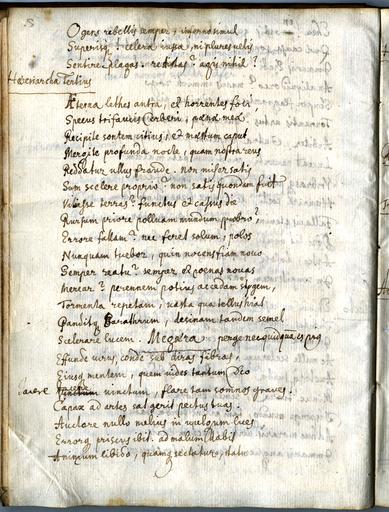 8
O gens rebellis semper, infernoqimul
Superisq? celera iussa, ni plures vultis
Sentire plagas. restitas? agis nihil?
Haeresiarcha Tertius
Æterna lethes antra, et horrentes fori
Specus trifaucis Cerberi, poena mea
Recipite sontem vitius, et moestum caput
Mergite profunda nocte, quam nostra reus
Reddatur ullus fraude. non miser satis
Sum scelere proprio? non satis quondam fuit
terras? functus et cassus die
Rursum priore polluam mundum probro?
Errore fallam? nec feret solum, polos
Nunquam tuebor, quin nocens fiam novo
Semper reatu? semper et poenas novas
Merear? perennem potius accedam stygem,
Tormenta repetam, vasta qua tellus hiat
Panditq Barathrum, desinam tandem semel
Scelerare lucem. Megæra. perge nec quidquam es prg
Effunde virus, conde sub diras fibras,
Eiusq mentem, quem vides tantum Deo
Iacere vinctum, flare tam somnos graves.
Capax ad artes sat gerit pectus tuas.
Auctore nullo melius in vulgum lues,
Errorq priscus ibit. ad malum labit
Animum libido, quamq sectatur, statu